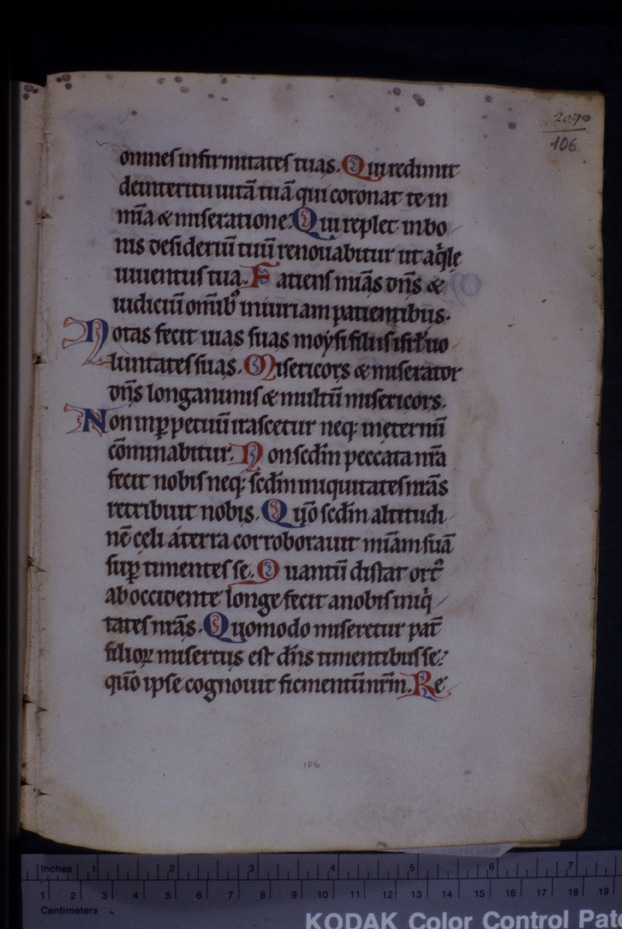 207
106
omnes infirmitates tuas. Qui redimit
deinteritu uitā tuā qui coronat te in
mīa & miseratione. Qui replet inbo
nis desideriū tuū renouabitur ut aq̇le
iuuentus tua. Fatiens mīas dn̄s &
iudiciū om̄ib; iniuriam patientibus.
Notas fecit uias suas moysi filiis isrł uo
luntates suas. Misericors & miserator
dn̄s longanimis & multū misericors.
Non inp̱petuū irascetur neq; ineternū
cōminabitur. Non sedm̄ peccata nr̄a
fecit nobis neq; sedm̄ iniquitates nr̄as
retribuit nobis. Qm̄o sedm̄ altitudi
nē celi aterra corroborauit mīam suā
sup̱ timentes se. Quantū distat ort᷒
ab occidente longe fecit anobis iniq̇
tates nr̄as. Quomodo miseretur pat̄
filioꝝ misertus est dn̄s timentibus se.
quō ipse cognouit figmentū nr̄m. Re
106
inches 1 2 3 4 5 6 7
1 2 3 4 5 6 7 8 9 10 11 12 13 14 15 16 17 18 19
Centimeters
KODAK Color Control Patc